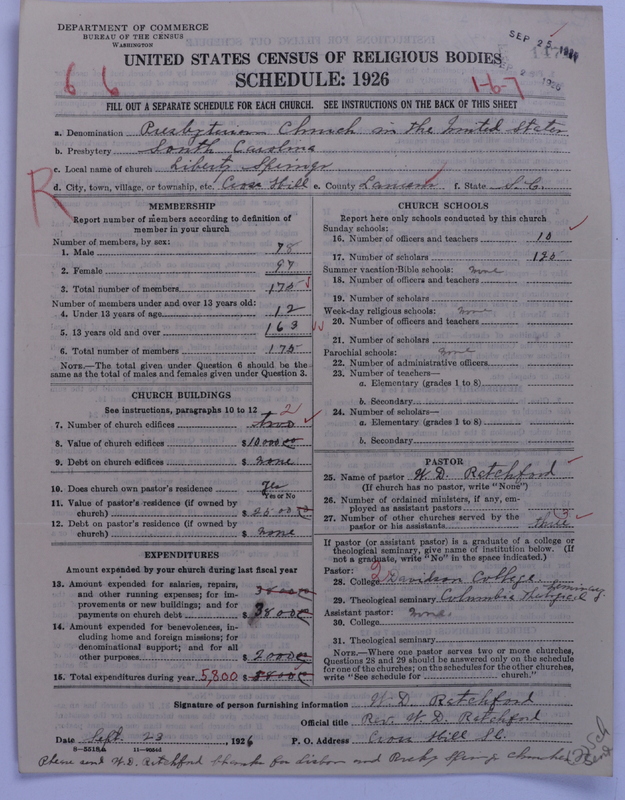 DEPARTMENT OF COMMERCE
BUREAU OF THE CENSUS
WASHINGTON
SEP 25 1926
UNITED STATES CENSUS OF RELIGIOUS BODIES
SCHEDULE: 1926
6 6
1-6-7
FILL OUT A SEPARATE SCHEDULE FOR EACH CHURCH. SEE INSTRUCTIONS ON THE BACK OF THIS SHEET
a. Denomination Presbyterian Church in the United States
b. Presbytery South Carolina
c. Local name of church Liberty Springs
d. City, town, village, or township, etc. Cross Hill e. County Laurens f. State S.C.
R
MEMBERSHIP
Report number of members according to definition of
member in your church
Number of members, by sex:
1. Male 78
2. Female 97
3. Total number of members 175
Number of members under and over 13 years old:
4. Under 13 years of age 12
5. 13 years old and over 163
6. Total number of members 175
NOTE.—The total given under Question 6 should be the
same as the total of males and females given under Question 3.
CHURCH BUILDINGS
See instructions, paragraphs 10 to 12
7. Number of church edifices two 2
8. Value of church edifices $10000 00
9. Debt on church edifices $ none
10. Does church own pastor's residence yes
Yes or No
11. Value of pastor's residence (if owned by
church) $ 2500 00
12. Debt on pastor's residence (if owned by
church) $ none
EXPENDITURES
Amount expended by your church during last fiscal year
13. Amount expended for salaries, repairs,
and other running expenses; for im-
provements or new buildings; and for
payments on church debt $ 3800 00
14. Amount expended for benevolences, in-
cluding home and foreign missions; for
denominational support; and for all
other purposes $ 2000 00
15. Total expenditures during year 5,800 $
CHURCH SCHOOLS
Report here only schools conducted by this church
Sunday schools:
16. Number of officers and teachers 10
17. Number of scholars 120
Summer vacation Bible schools: none
18. Number of officers and teachers
19. Number of scholars
Week-day religious schools: none
20. Number of officers and teachers
21. Number of scholars
Parochial schools: none
22. Number of administrative officers
23. Number of teachers—
a. Elementary (grades 1 to 8)
b. Secondary
24. Number of scholars—
a. Elementary (grades 1 to 8)
b. Secondary
PASTOR
25. Name of pastor W. D. Ratchford
(If church has no pastor, write "None")
26. Number of ordained ministers, if any, em-
ployed as assistant pastors
27. Number of other churches served by the
pastor or his assistants three 3
If pastor (or assistant pastor) is a graduate of a college or
theological seminary, give name of institution below. (If
not a graduate, write "No" in the space indicated.)
Pastor: 2
28. College Davidson College
29. Theological seminary Columbia Theological Seminary
Assistant pastor: none
30. College
31. Theological seminary
NOTE.—Where one pastor serves two or more churches,
Questions 28 and 29 should be answered only on the schedule
for one of the churches; on the schedules for the other churches,
write "See schedule for church."
Signature of person furnishing information W. D. Ratchford
Official title Rev. W. D. Ratchford
Date Sept. 23, 1926 P. O. Address Cross Hill S.C.
8—5518A 11—9064d
Please send W.D. Ratchford blanks for Lisbon and Rocky Springs churches